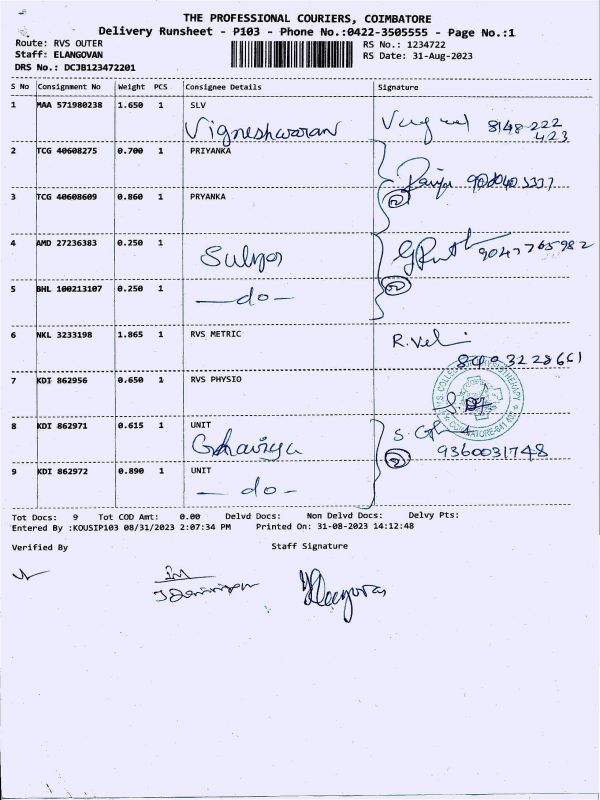 THE PROFESSIONAL COURIERS, COIMBATORE
Delivery Runsheet - P103 - Phone No.:0422-3505555 - Page No.:1
Route: RVS OUTER
Staff: ELANGOVAN
DRS No.: DCJB123472201
RS No.: 1234722
RS Date: 31-Aug-2023
S No Consignment No Weight PCS Consignee Details Signature
1 MAA 571980238 1.650 1 SLV
Vigneshwaran 8148-222
423
2 TCG 40608275 0.700 1 PRIYANKA
3 TCG 40608609 0.860 1 PRYANKA
2
4 AMD 27236383 0.250 1
9047765982
5 BHL 100213107 0.250 1
-do-
2
6 NKL 3233198 1.865 1 RVS METRIC
R.Vel
8493228661
7 KDI 862956 0.650 1 RVS PHYSIO
8 KDI 862971 0.615 1 UNIT
9360031748
9 KDI 862972 0.890 1 UNIT
-do-
2
Tot Docs: 9 Tot COD Amt: 0.00 Delvd Docs: Non Delvd Docs: Delvy Pts:
Entered By :KOUSIP103 08/31/2023 2:07:34 PM Printed On: 31-08-2023 14:12:48
Verified By Staff Signature